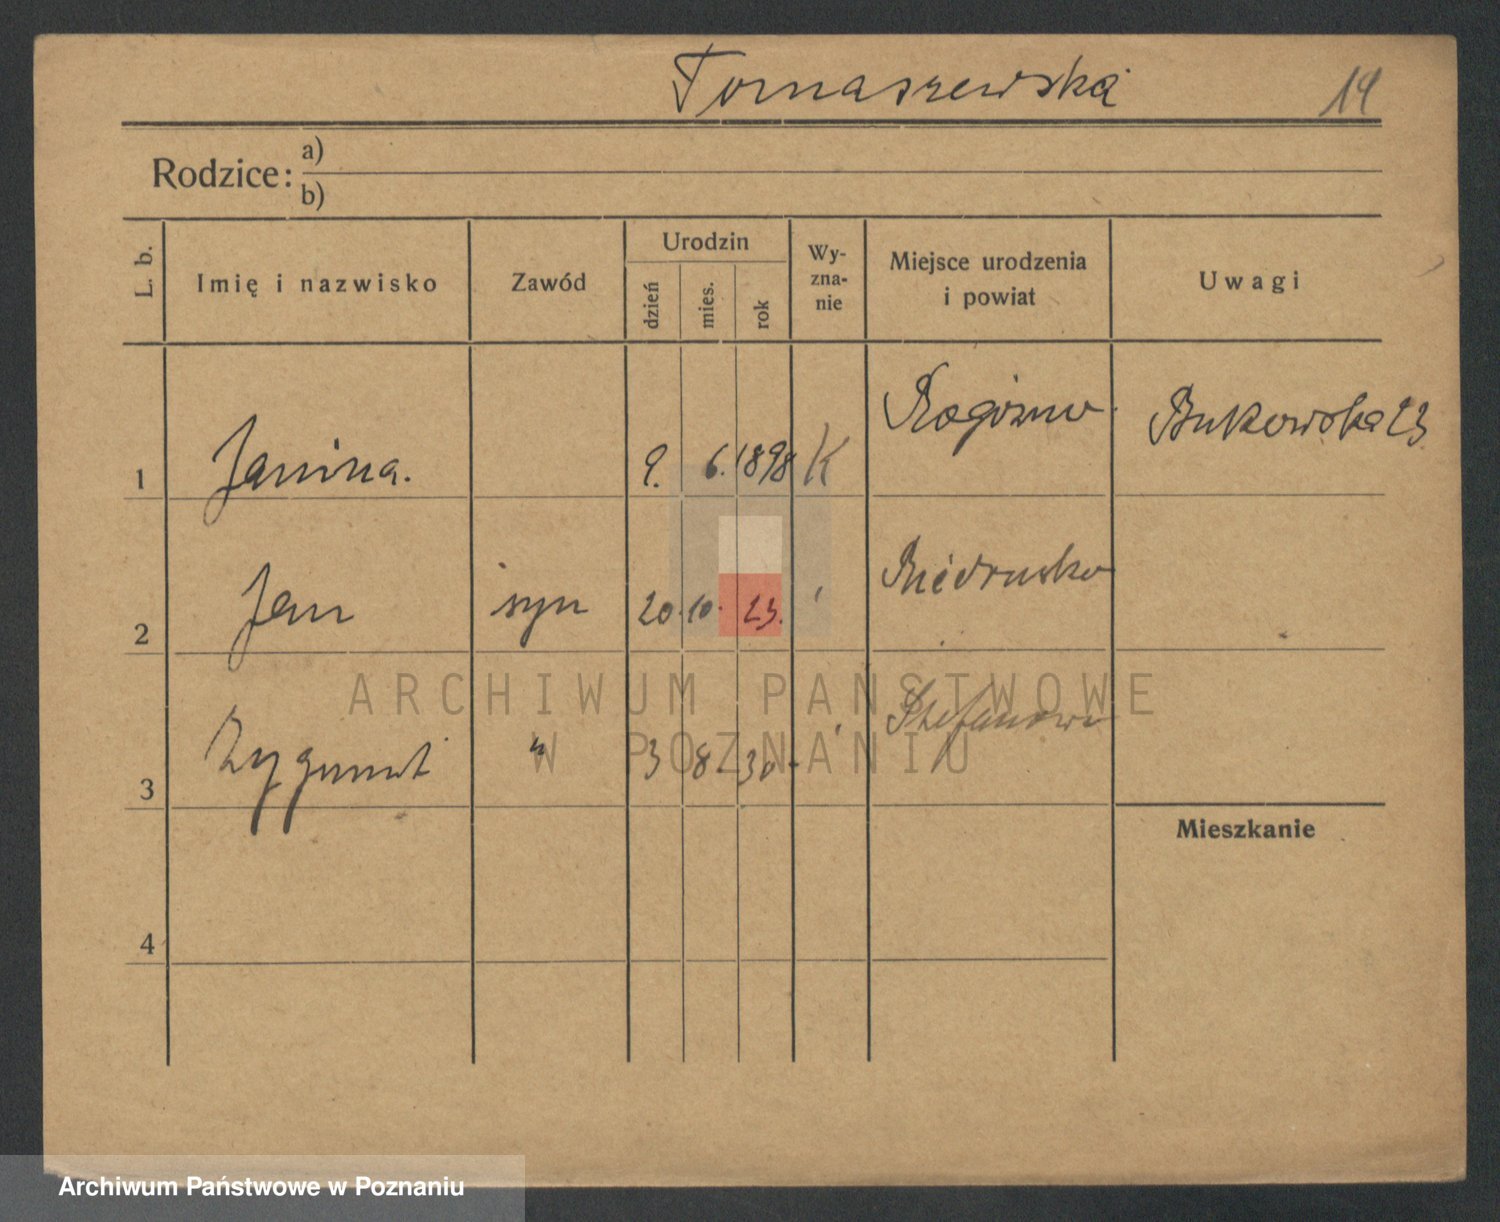 Tomaszewska 14
Rodzice:
a)
b)
L. b.
Imię i nazwisko
Zawód
Urodzin
dzień
mies.
rok
Wy-
zna-
nie
Miejsce urodzenia
i powiat
Uwagi
1 Janina. 9. 6. 1898 K Rogoźno Bukowska 23
2 Jan syn 20. 10. 23. Biedrusko
3 Zygmunt " 3 8 30
4
Mieszkanie
ARCHIWUM PAŃSTWOWE
W POZNANIU
Archiwum Państwowe w Poznaniu